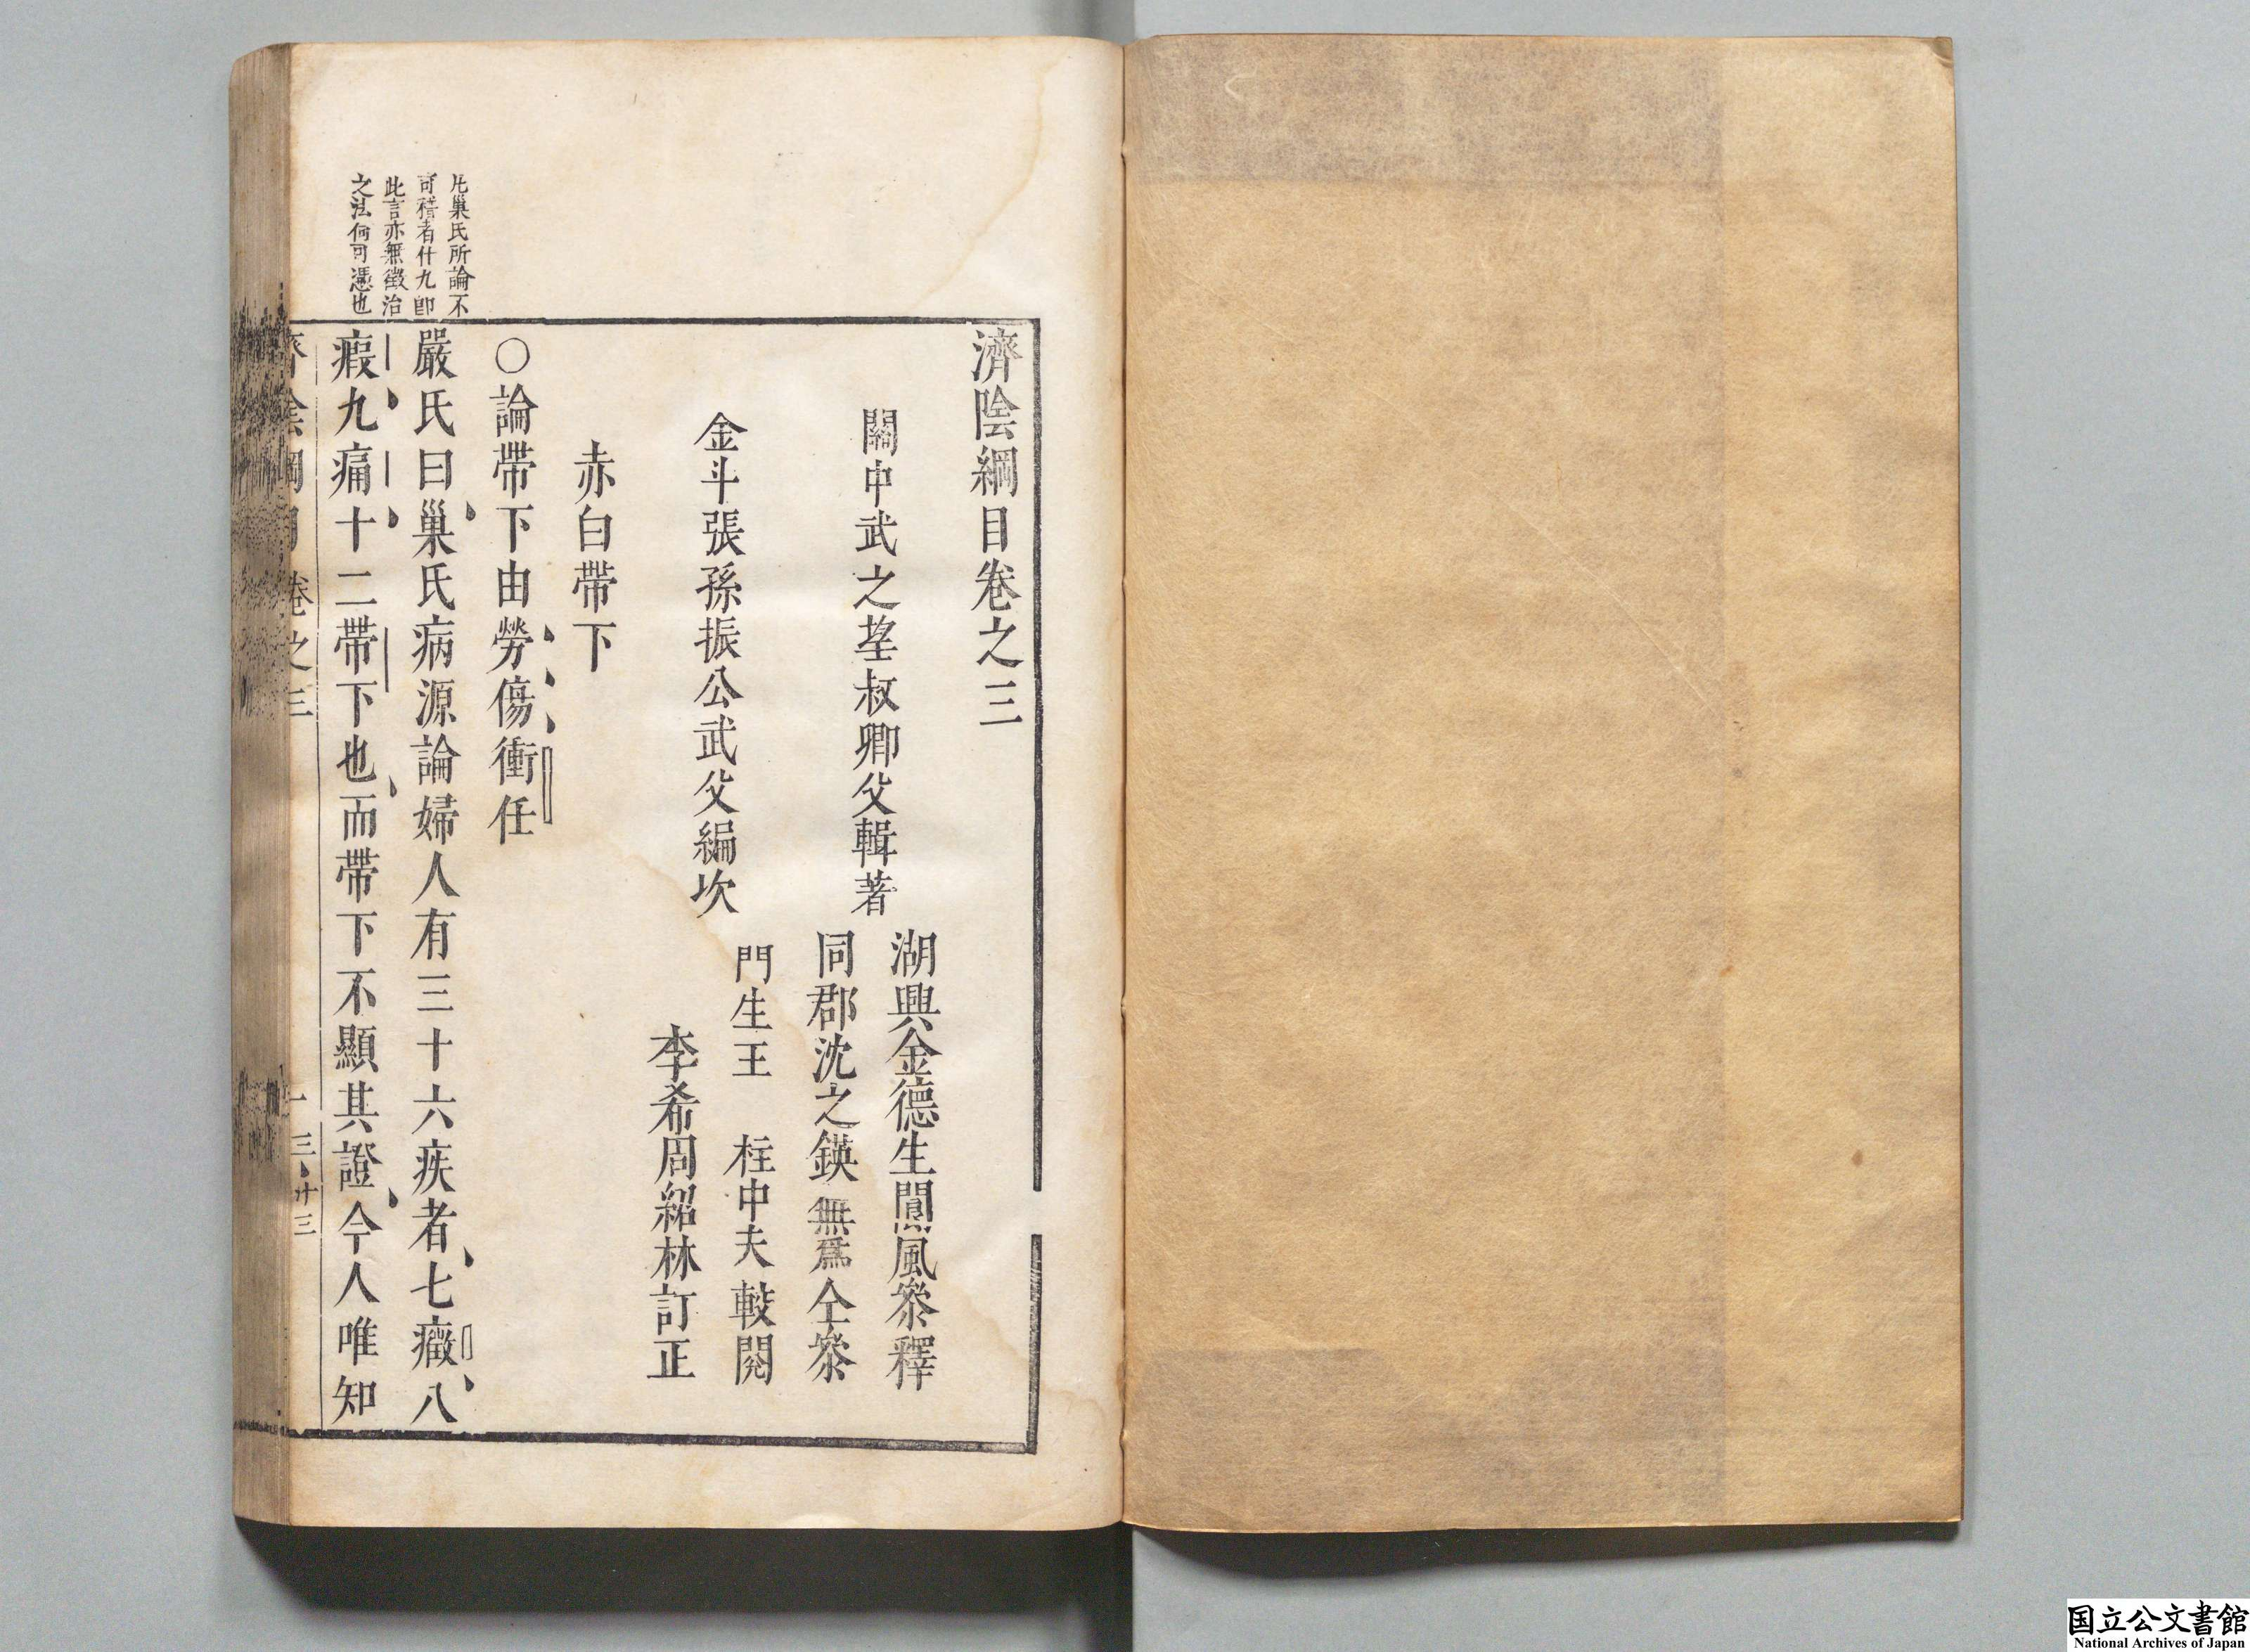 濟陰綱目卷之三
關中武之望叔卿父輯著
湖興金德生閬風叅釋
同郡沈之鍈無爲仝叅
金斗張孫振公武父編次
門生王　枉中夫較閱
李希周紹林訂正
赤白帶下
○論帶下由勞傷衝任
凡巢氏所論不
可稽者什九即
此言亦無徵治
之法何可憑也
嚴氏曰巢氏病源論婦人有三十六疾者七癥八
瘕九痛十二帶下也而帶下不顯其證今人唯知
濟陰綱目　卷之三　一　三、廿三
国立公文書館
National Archives of Japan